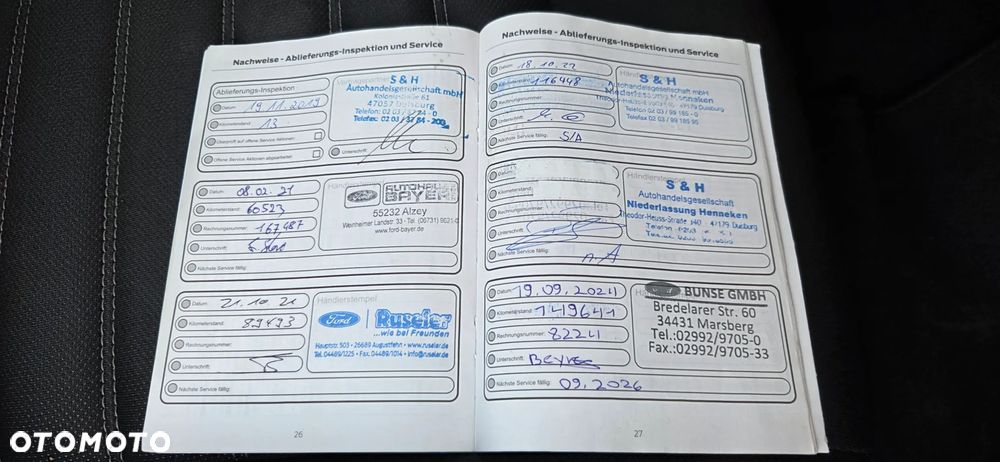 Nachweise - Ablieferungs-Inspektion und Service
Ablieferungs-Inspektion
Datum: 19.11.2019
Kilometerstand: 13
Überprüft auf offene Service Aktionen:
Offene Service Aktionen abgearbeitet:
S & H
Autohandelsgesellschaft mbH
Koloniestraße 61
47057 Duisburg
Unterschrift:
Datum: 08.02.21
Kilometerstand: 60523
Rechnungsnummer: 167487
Unterschrift:
Nächste Service fällig:
Ford
AUTOHAUS
BAYER
55232 Alzey
Weinheimer Landstr. 33 - Tel. (06731) 9621-0
www.ford-bayer.de
Datum: 21.10.21
Kilometerstand: 89493
Rechnungsnummer:
Unterschrift:
Nächste Service fällig:
Händlerstempel
Ford
Ruseler
...wie bei Freunden
Hauptstr. 503 - 26689 Augustfehn
Tel. 04489/1225 • Fax. 04489/1014 • info@ruseler.de
26
Nachweise - Ablieferungs-Inspektion und Service
Datum: 18.10.22
Kilometerstand: 116448
Rechnungsnummer:
Unterschrift:
Nächste Service fällig: S/A
S & H
Autohandelsgesellschaft mbH
Niederlassung Henneken
47179 Duisburg
Telefon 02 03 / 99 185 - 0
Telefax 02 03 / 99 185 95
Datum:
Kilometerstand:
Rechnungsnummer:
Unterschrift:
Nächste Service fällig: n.A
Händlerstempel
S & H
Autohandelsgesellschaft
Niederlassung Henneken
Theodor-Heuss-Straße 140 - 47179 Duisburg
Datum: 19.09.2024
Kilometerstand: 149641
Rechnungsnummer: 82241
Unterschrift:
Nächste Service fällig: 09.2026
BUNSE GMBH
Bredelarer Str. 60
34431 Marsberg
Tel.:02992/9705-0
Fax.:02992/9705-33
27
OTOMOTO